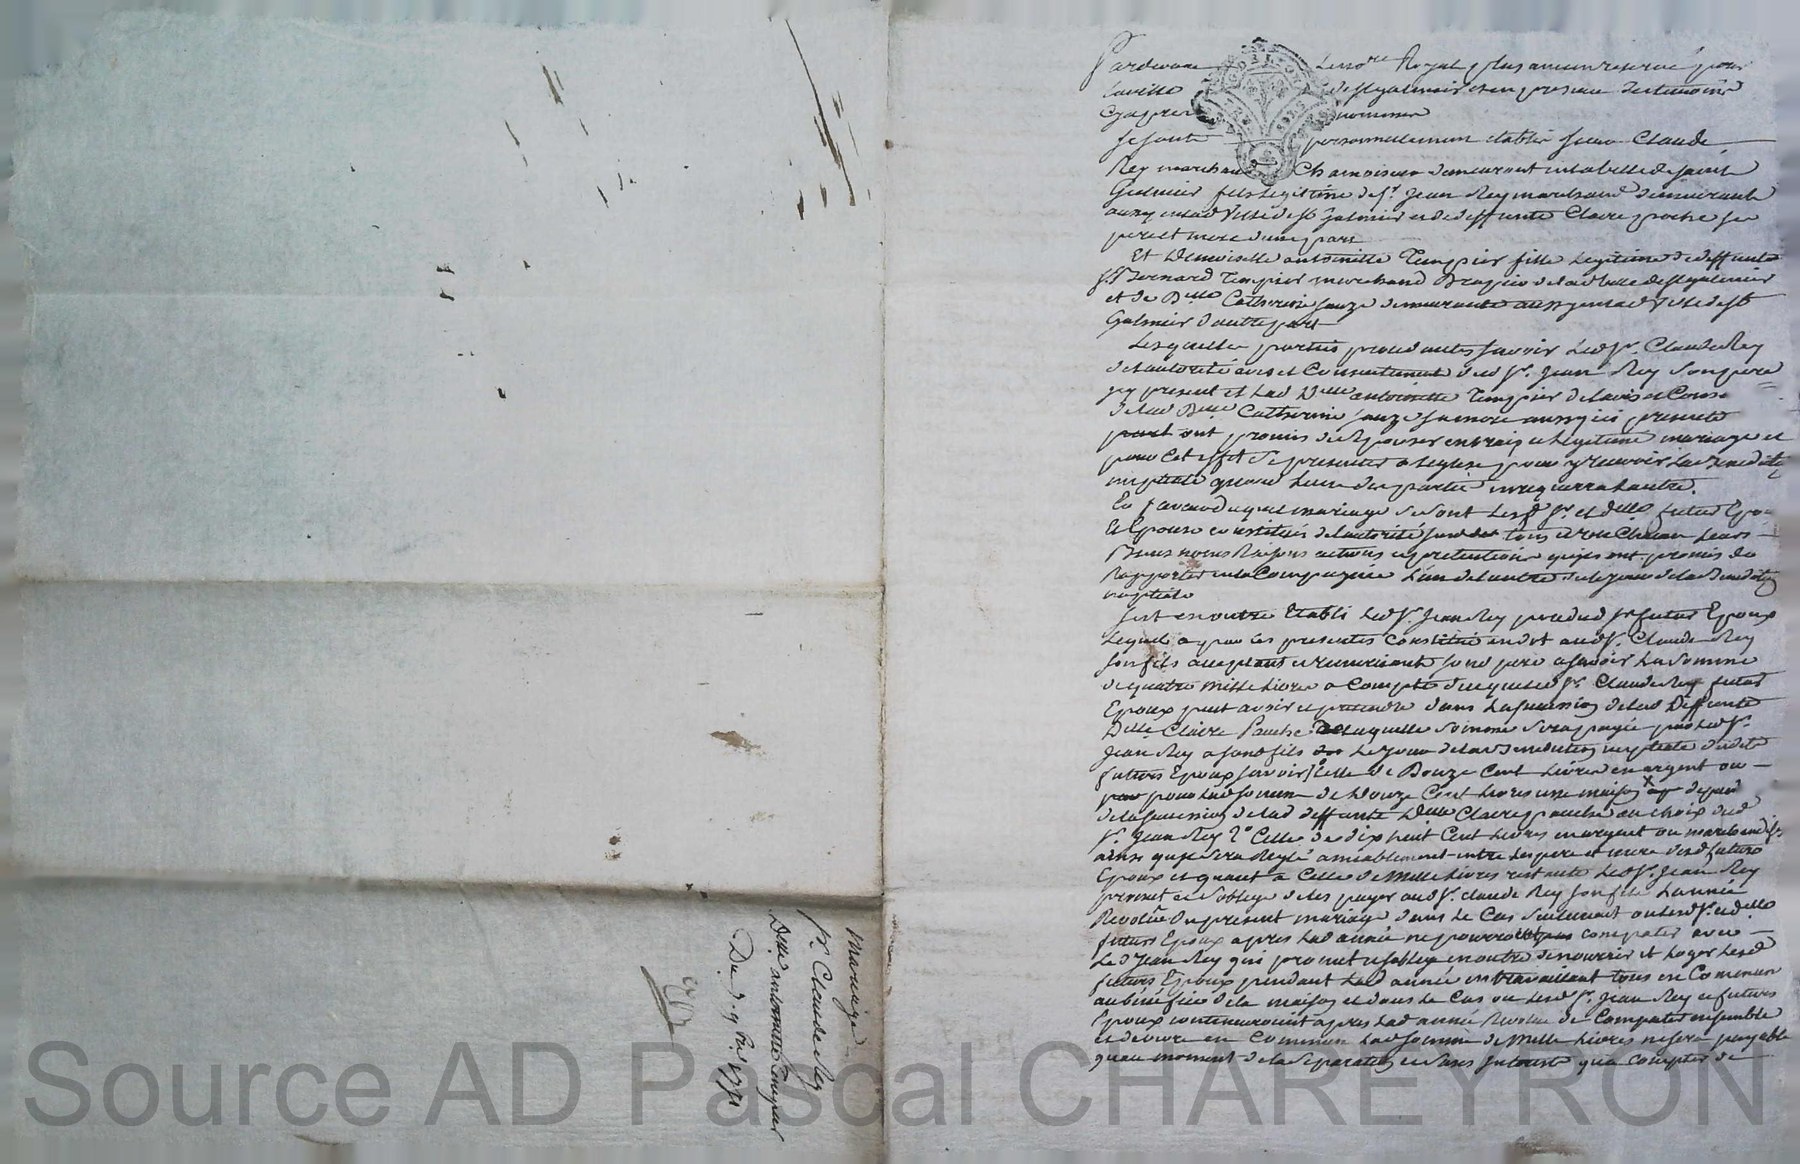 Pardevant Le nore Royal plus ancien reservé pour
la ville de St galmier et en presence des temoins
Cy apres nommés
Je sont personnellement etablis Sieur Claude
Rey marchand Chamoiseur demeurant en la ville de Saint
Galmier fils legitime de Sr. Jean Rey marchand demeurant
aussy en lad Ville de St Galmier et de deffunte Claire poche ses
pere et mere d'une part
Et Demoiselle antoinette Tempier fille legitime de deffunt
Sr Bernard Tempier marchand Drapier de lad ville de St galmier
et de Dlle Catherine Jauze demeurante aussy en lad Ville de St
Galmier d'autre part
Lesquelles parties procedantes savoir Led Sr. Claude Rey
de l'autorité avis et Consentement dud Sr. Jean Rey son pere
icy present et Lad Dlle antoinette Tempier de l'avis et Conse
de lad Dlle Catherine Jauze sa mere aussy ici presente
ont promis de Sepouser en vrai et legitime mariage et
pour Cet effet Se presenter a leglise pour y recevoir La Benedictn
nuptiale quand Lune des parties en requerra Lautre.
En faveur duquel mariage Se sont Lesd Sr. et dlle futurs Epou
Et Epouse constitués de l'autorité Susd tous et un Chacun Leurs
Biens noms Raisons actions et pretentions quils ont promis de
Rapporter en la Compagnie L'un de l'autre le jour de la Benedictn
nuptiale
Sest en outre Etabli Led Sr. Jean Rey pere dud Sr futur Epoux
Lequel a par Ces presentes Constitué en dot aud Sr. Claude Rey
son fils acceptant et remerciant sond pere a savoir La Somme
de quatre Mille Livres a Compte de ce que led Sr. Claude Rey futur
Epoux peut avoir et pretendre dans La Succession de lad Deffunte
Dlle Claire Pauche Laquelle somme sera payée par Led Sr.
Jean Rey a sond fils Le jour de la Benediction nuptiale desdits
futurs Epoux savoir Celle de Douze Cent Livres en argent ou
pour Lad somme de Douze Cent Livres une maison
de la Succession de lad deffunte Dlle Claire pauche au choix dud
Sr. Jean Rey 2o Celle de dix huit Cent Livres en argent ou marchandises
ainsi quil sera Reglé amiablement entre Les pere et mere desd futurs
Epoux et quant a Celle de Mille Livres restante Led Sr. Jean Rey
promet et Soblige de Les payer aud Sr. Claude Rey son fils Lannée
Revolue Du present mariage dans Le Cas Seulement ou Lesd Sr. et dlle
futurs Epoux apres Lad année ne pourroient compater avec
Led Jean Rey qui promet et soblige en outre de nourrir et Loger Lesd
futurs Epoux pendant Lad année en travaillant tous en Commun
au bénéfice de la maison et dans Le Cas ou Lesd Sr. Jean Rey et futurs
Epoux continueroient apres Lad année Revolue de Compater ensemble
et de vivre en Commun Lad somme de Mille Livres ne sera payable
quau moment de la Separation et Sans Interest qua compter de
Mariage
Sr. Claude Rey
Dlle antoinette Tempier
Du 9bre 1771
Source AD Pascal CHAREYRON